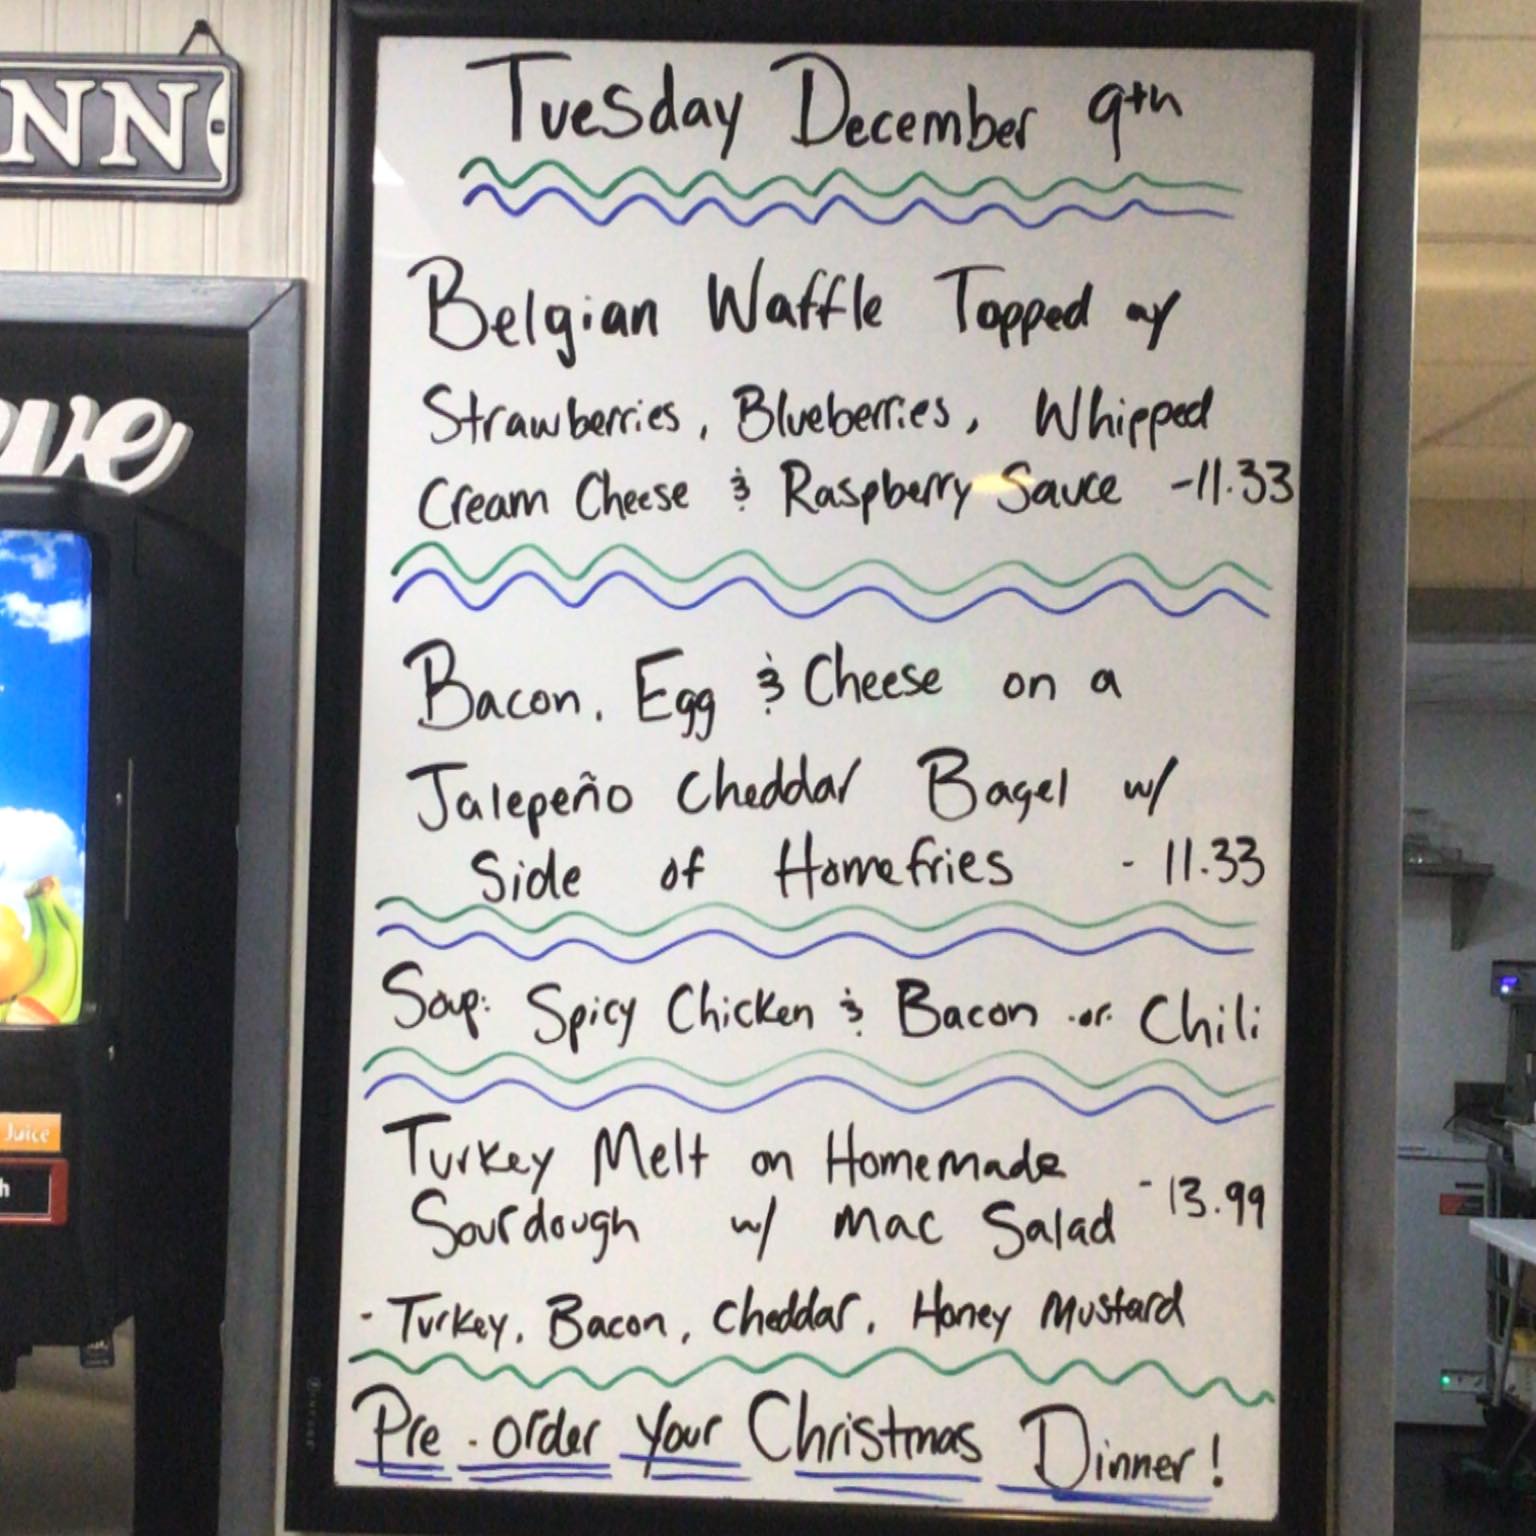 NN
ve
Juice
h
Tuesday December 9th
Belgian Waffle Topped w/
Strawberries, Blueberries, Whipped
Cream Cheese & Raspberry Sauce -11.33
Bacon, Egg & Cheese on a
Jalepeño Cheddar Bagel w/
Side of Homefries - 11.33
Soup: Spicy Chicken & Bacon .or. Chili
Turkey Melt on Homemade
Sourdough w/ Mac Salad - 13.99
- Turkey, Bacon, Cheddar, Honey Mustard
Pre-order Your Christmas Dinner!